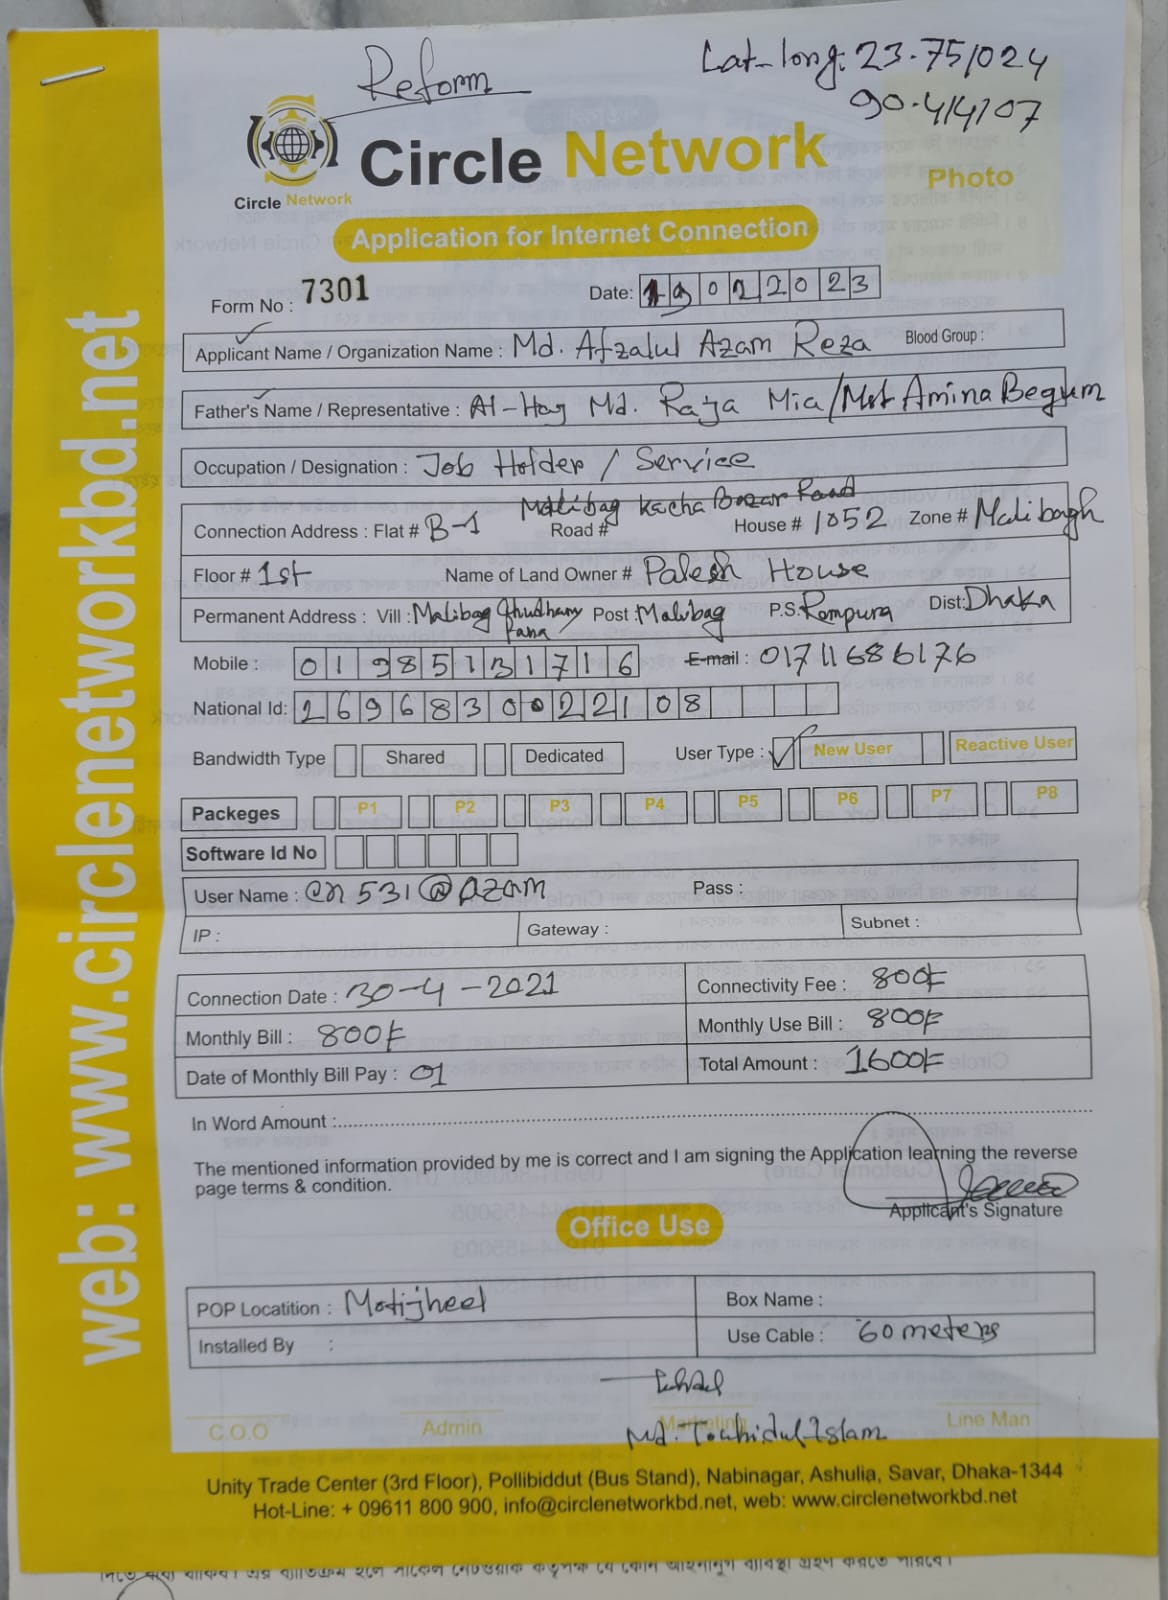 Reform
Lat-long: 23.751024
90.414107
Circle Network
Circle Network
Photo
Application for Internet Connection
Form No : 7301 Date: 19022023
Applicant Name / Organization Name : Md. Afzalul Azam Reza Blood Group :
Father's Name / Representative : Al-Haj Md. Raja Mia/Mst Amina Begum
Occupation / Designation : Job Holder / Service
Malibag Kacha Bazar Road
Connection Address : Flat # B-1 Road # House # 1052 Zone # Malibagh
Floor # 1st Name of Land Owner # Palash House
Permanent Address : Vill : Malibag Chudhary Post : Malibag P.S. Rampura Dist: Dhaka
Para
Mobile : 01985131716 E-mail : 01711686176
National Id: 2696830022108
Bandwidth Type Shared Dedicated User Type : New User Reactive User
Packeges P1 P2 P3 P4 P5 P6 P7 P8
Software Id No
User Name : cn531@Azam Pass :
IP : Gateway : Subnet :
Connection Date : 30-4-2021 Connectivity Fee : 800/-
Monthly Bill : 800/- Monthly Use Bill : 800/-
Date of Monthly Bill Pay : 01 Total Amount : 1600/-
In Word Amount :
The mentioned information provided by me is correct and I am signing the Application learning the reverse
page terms & condition.
Applicant's Signature
Office Use
POP Locatition : Motijheel Box Name :
Installed By : Use Cable : 60 meters
C.O.O Admin Marketing Line Man
Md. Touhidul Islam
Unity Trade Center (3rd Floor), Pollibiddut (Bus Stand), Nabinagar, Ashulia, Savar, Dhaka-1344
Hot-Line: + 09611 800 900, info@circlenetworkbd.net, web: www.circlenetworkbd.net
web: www.circlenetworkbd.net